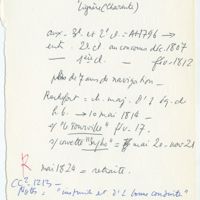 Lignère (Charente)
aux. 3e. et 2e cl. = An 1796 →
ent. 2e cl. au concours déc. 1807
— 1ère cl. — fév. 1812
plus de 7 ans de navigation.
Rochefort = ch. maj. d'
→ 10 mai 1814 -
s/ "le Tourville" fév. 17.
s/ corvette mai 20 - nov. 21
R
mai 1824 = retraite.
CC2 1213 -
Notes = "instruit et d'1 bonne conduite"